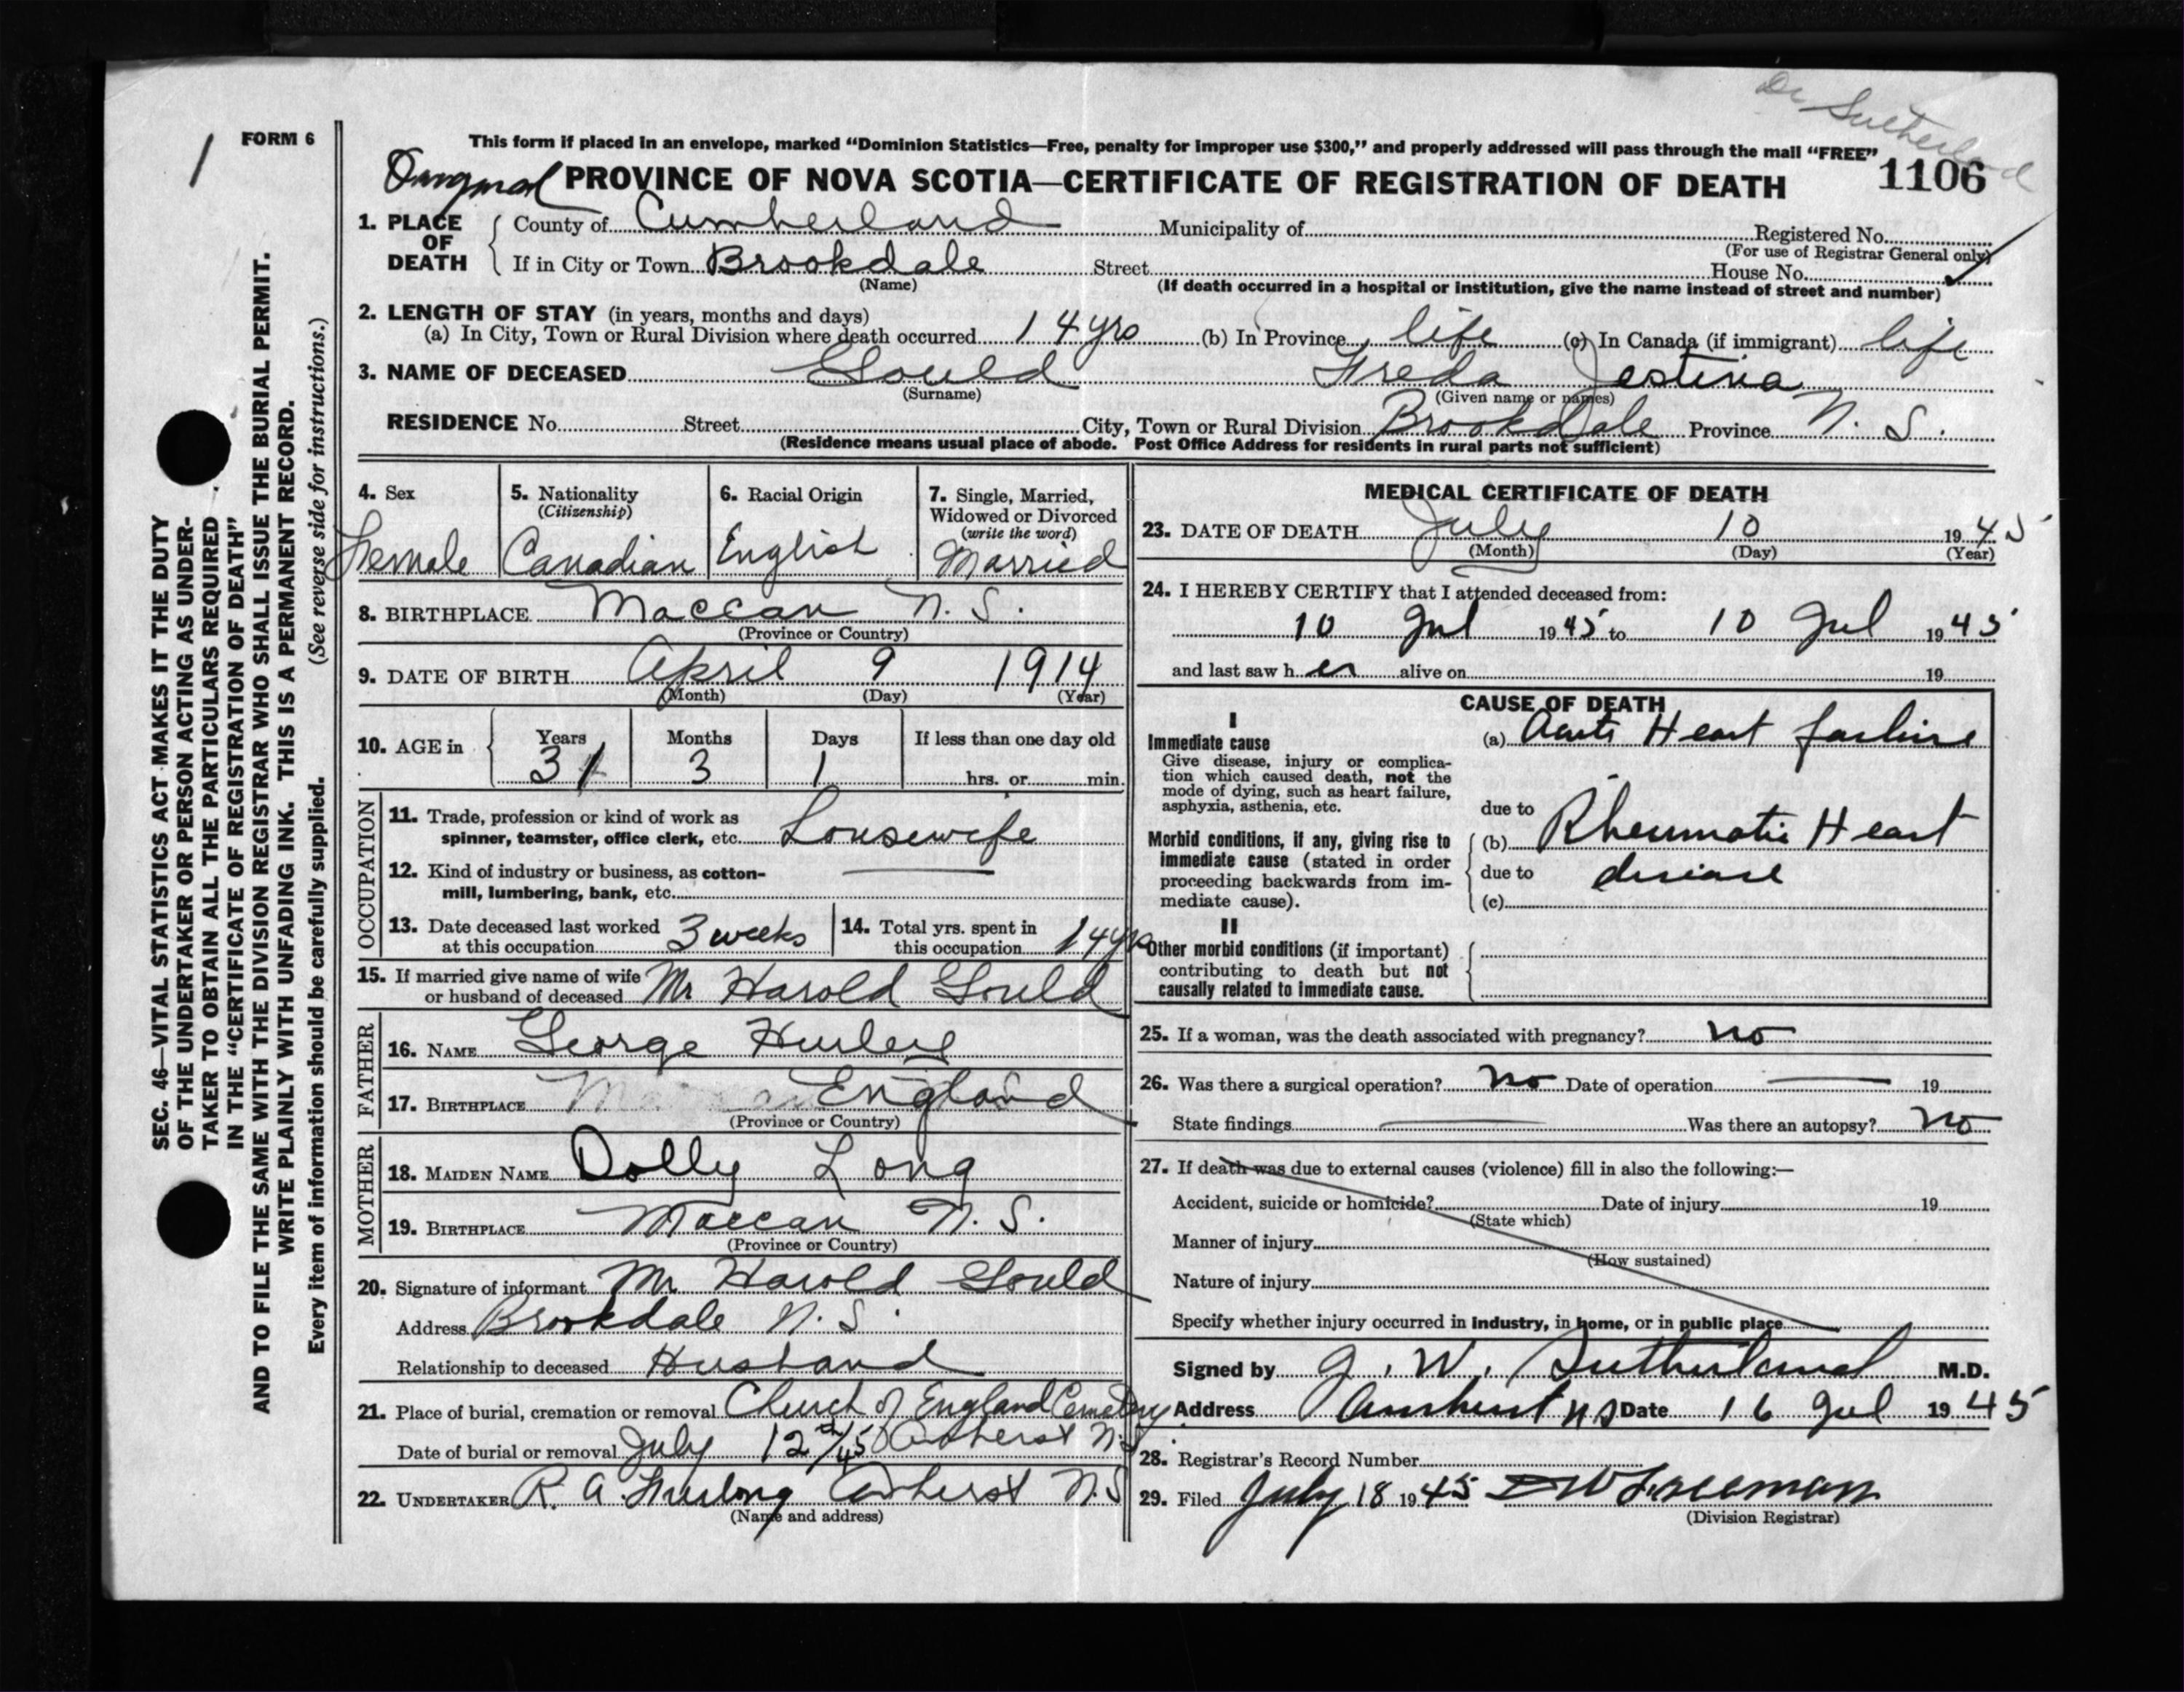 Dr Sutherland
1
FORM 6
This form if placed in an envelope, marked “Dominion Statistics—Free, penalty for improper use $300,” and properly addressed will pass through the mail “FREE”
PROVINCE OF NOVA SCOTIA—CERTIFICATE OF REGISTRATION OF DEATH 1106
1. PLACE OF DEATH
County of Cumberland Municipality of Registered No.
(For use of Registrar General only)
If in City or Town Brookdale Street House No.
(Name)
(If death occurred in a hospital or institution, give the name instead of street and number)
2. LENGTH OF STAY (in years, months and days)
(a) In City, Town or Rural Division where death occurred 14 yrs (b) In Province life (c) In Canada (if immigrant) life
3. NAME OF DECEASED Gould Freda Jestina
(Surname) (Given name or names)
RESIDENCE No. Street City, Town or Rural Division Brookdale Province N. S.
(Residence means usual place of abode. Post Office Address for residents in rural parts not sufficient)
4. Sex
Female
5. Nationality
(Citizenship)
Canadian
6. Racial Origin
English
7. Single, Married,
Widowed or Divorced
(write the word)
Married
8. BIRTHPLACE Maccan N. S.
(Province or Country)
9. DATE OF BIRTH April 9 1914
(Month) (Day) (Year)
10. AGE in Years Months Days If less than one day old
31 3 1 hrs. or min.
OCCUPATION
11. Trade, profession or kind of work as
spinner, teamster, office clerk, etc. Housewife
12. Kind of industry or business, as cotton-
mill, lumbering, bank, etc.
13. Date deceased last worked
at this occupation 3 weeks
14. Total yrs. spent in
this occupation 14 yrs
15. If married give name of wife
or husband of deceased Mr Harold Gould
FATHER
16. NAME George
17. BIRTHPLACE England
(Province or Country)
MOTHER
18. MAIDEN NAME Dolly Long
19. BIRTHPLACE Maccan N. S.
(Province or Country)
20. Signature of informant Mr Harold Gould
Address Brookdale N. S.
Relationship to deceased Husband
21. Place of burial, cremation or removal Church of England Cemetery
Date of burial or removal July 12th/45 Amherst N.S.
22. UNDERTAKER R. A. Furlong Amherst N.S
(Name and address)
MEDICAL CERTIFICATE OF DEATH
23. DATE OF DEATH July 10 1945
(Month) (Day) (Year)
24. I HEREBY CERTIFY that I attended deceased from:
10 Jul 1945 to 10 Jul 1945
and last saw her alive on 19
CAUSE OF DEATH
I
Immediate cause
Give disease, injury or complica-
tion which caused death, not the
mode of dying, such as heart failure,
asphyxia, asthenia, etc.
(a) Acute Heart failure
due to
Morbid conditions, if any, giving rise to
immediate cause (stated in order
proceeding backwards from im-
mediate cause).
(b) Rheumatic Heart
due to disease
(c)
II
Other morbid conditions (if important)
contributing to death but not
causally related to immediate cause.
25. If a woman, was the death associated with pregnancy? no
26. Was there a surgical operation? no Date of operation 19
State findings Was there an autopsy? no
27. If death was due to external causes (violence) fill in also the following:—
Accident, suicide or homicide? Date of injury 19
(State which)
Manner of injury
(How sustained)
Nature of injury
Specify whether injury occurred in Industry, in home, or in public place
Signed by J. W. Sutherland M.D.
Address Amherst NS Date 16 Jul 1945
28. Registrar's Record Number
29. Filed July 18 1945
(Division Registrar)
SEC. 46—VITAL STATISTICS ACT MAKES IT THE DUTY
OF THE UNDERTAKER OR PERSON ACTING AS UNDER-
TAKER TO OBTAIN ALL THE PARTICULARS REQUIRED
IN THE “CERTIFICATE OF REGISTRATION OF DEATH”
AND TO FILE THE SAME WITH THE DIVISION REGISTRAR WHO SHALL ISSUE THE BURIAL PERMIT.
WRITE PLAINLY WITH UNFADING INK. THIS IS A PERMANENT RECORD.
Every item of information should be carefully supplied. (See reverse side for instructions.)